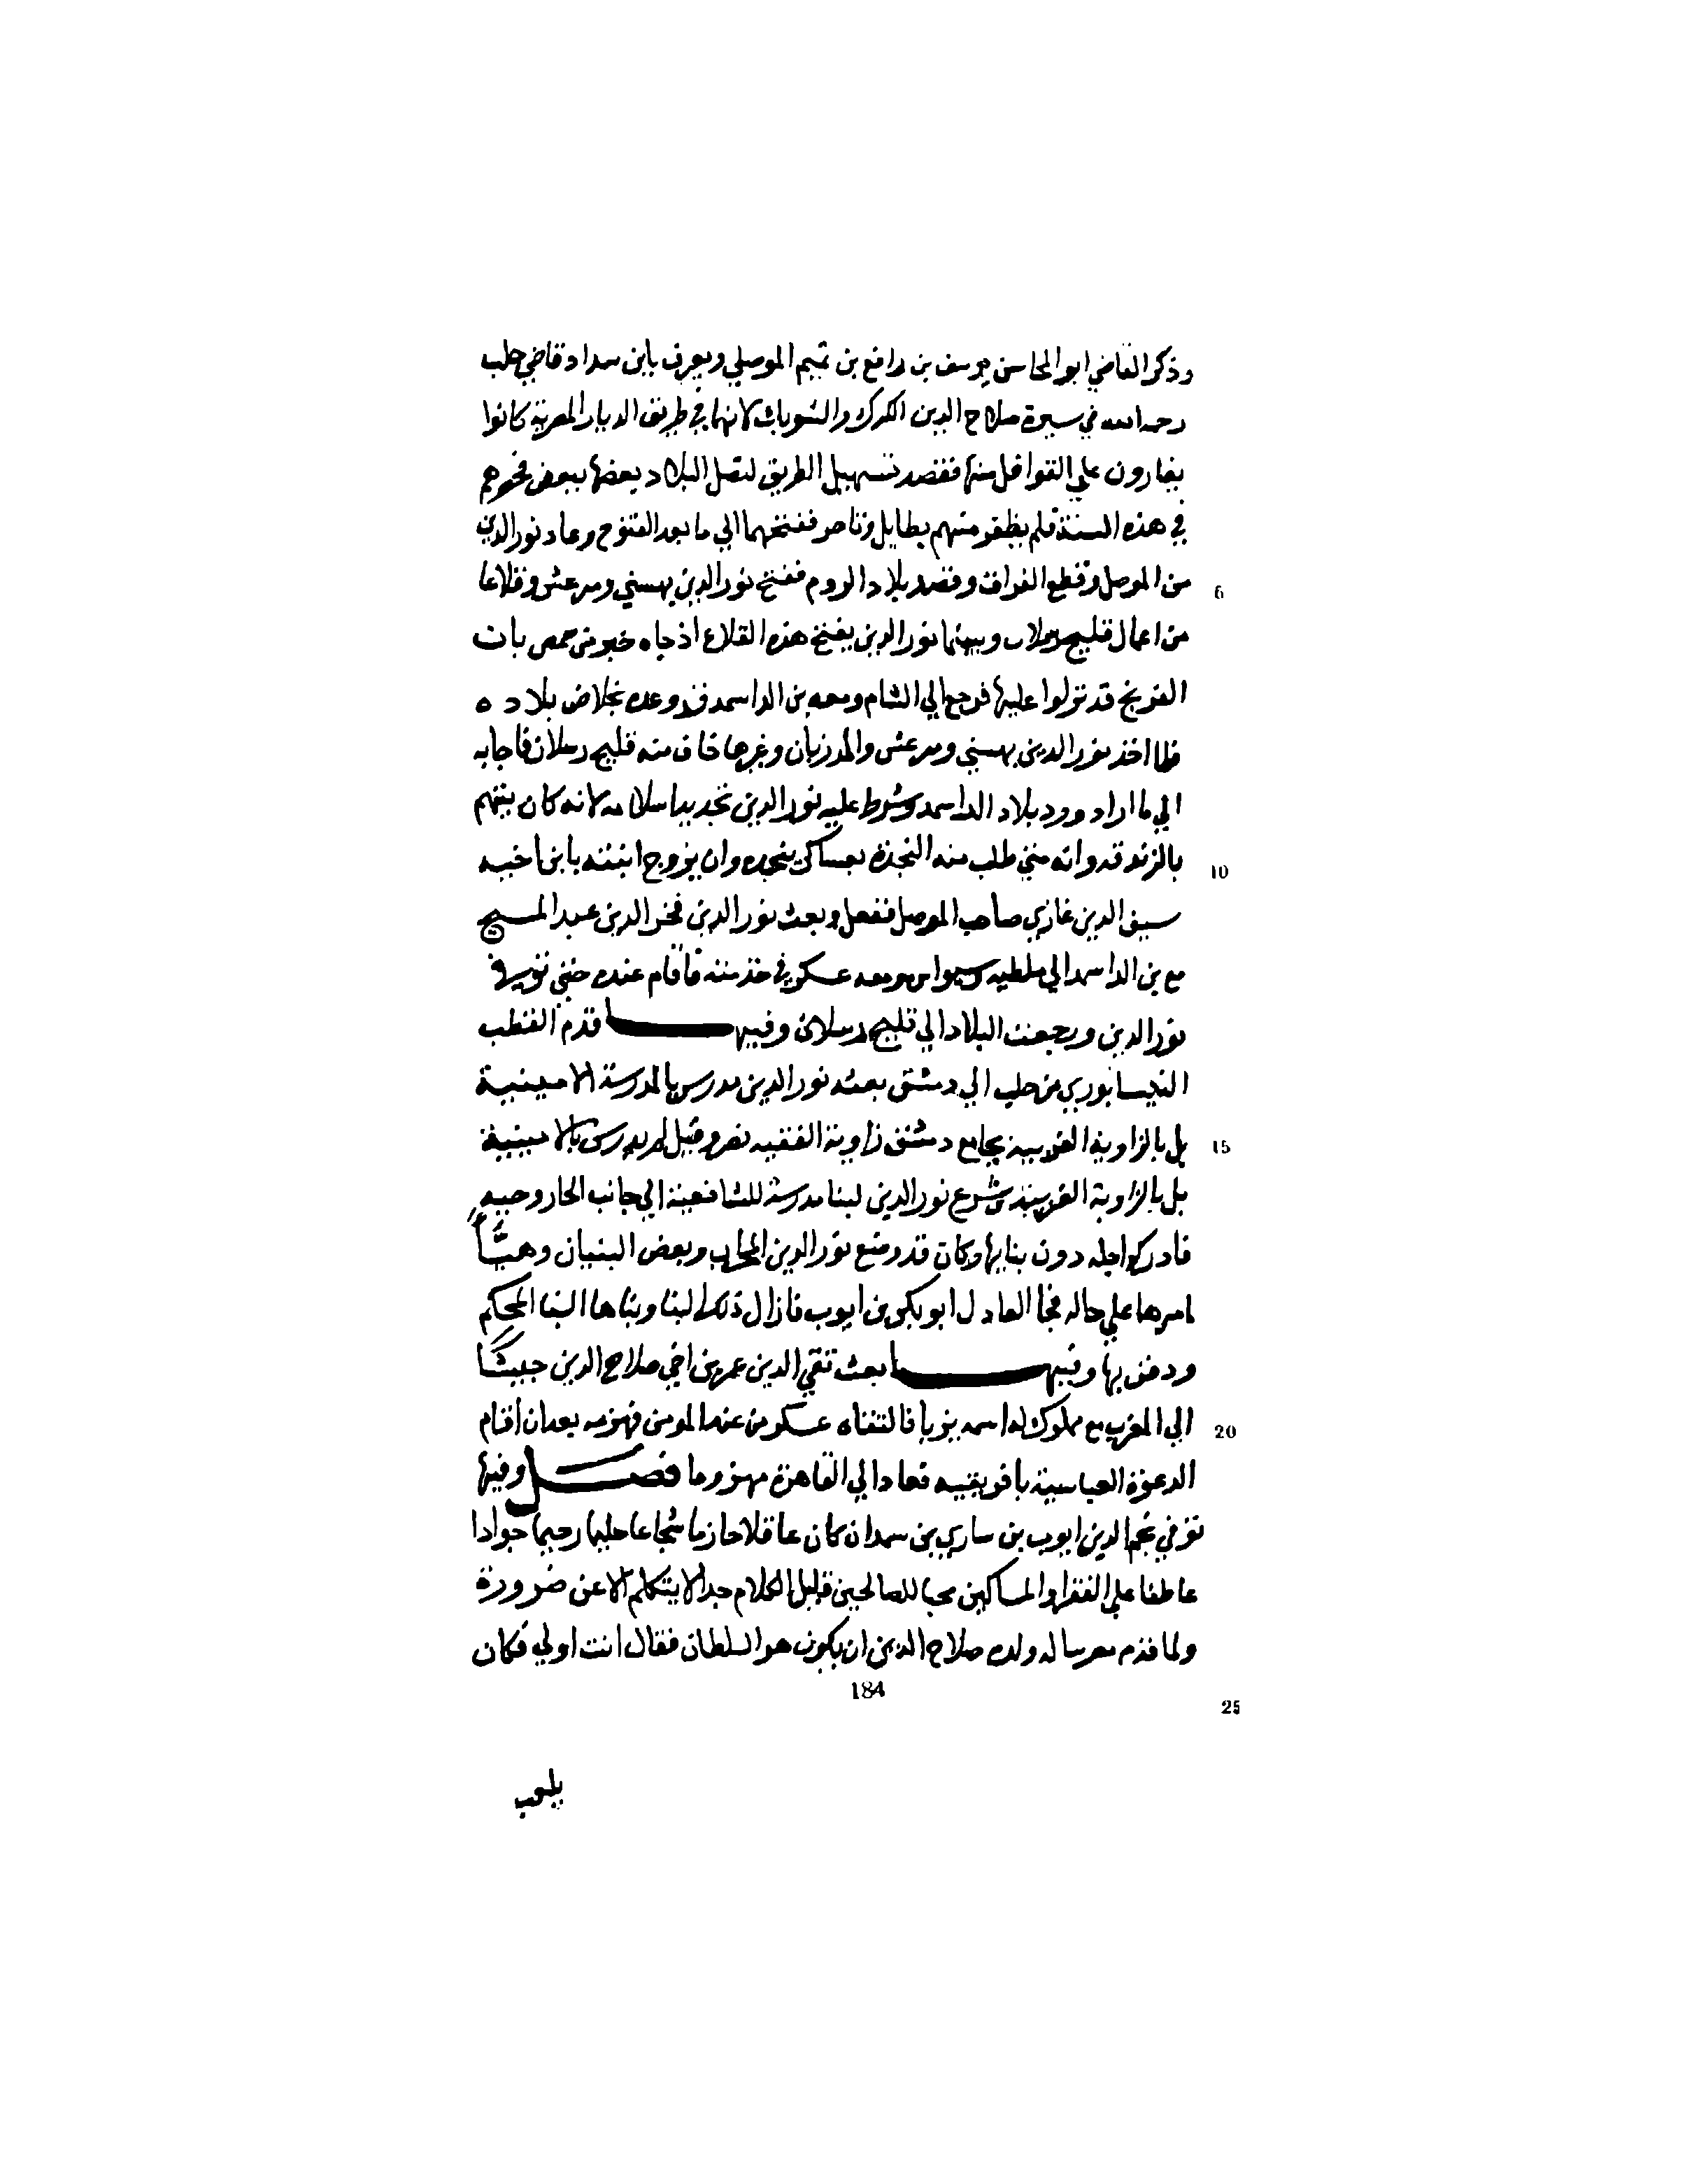 وذكر القاضي ابو المحاسن يوسف بن رافع بن تميم الموصلي ويعرف بابن سداد قاضي حلب
رحه الله في سيرة صلاح الدين الكرك والشوبك لانها في طريق الديار المصرية كانوا
يغارون علي القوافل منها فقصد تسهيل الطريق لتصل البلاد بعضها ببعض
في هذه السنة فلم يظفر منهم بطايل وتاخر فتحهما الي ما بعد الفتوح وعاد نور الدين
من الموصل وقطع الفرات وقصد بلاد الروم ففتح نور الدين بهسني ومرعش وقلاعا
6
من اعمال قليج رسلان وبينما نور الدين يفتح هذه القلاع اذ جاه خبر من حمص بان
الفرنج قد نزلوا عليها فرجع الي الشام ومعه بن الداسمد قد وعده بخلاص بلاده
فلما اخذ نور الدين بهسني ومرعش والمرزبان وغيرها خاف منه قليج رسلان فاجابه
الي ما اراد ورد بلاد الداسمد وشرط عليه نور الدين تجديد اسلامه لانه كان يتهم
بالزندقه وانه متي طلب منه النجدة بعساكر ينجده وان يزوج ابنته بابن اخيه
10
سيف الدين غازي صاحب الموصل ففعل وبعث نور الدين فخر الدين عبد المسيح
مع بن الداسمد الي ملطيه وسيواس ومعه عسكر في خدمته فاقام عنده حتي توفي
نور الدين ورجعت البلاد الي قليج رسلان وفيها قدم القطب
النيسابوري من حلب الي دمشق بعثه نور الدين مدرس بالمدرسة الامينية
بل بالزاوية الغربية بجامع دمشق زاوية الفقيه نصر وقيل لم يدرس بالامينية
15
بل بالزاوية الغربية وشرع نور الدين لبنا مدرسة للشافعية الي جانب الجاروخيه
فادركه اجله دون بنايها وكان قد وضع نور الدين المحراب وبعض البنيان وهيا
امرها علي حاله فجا العادل ابو بكر بن ايوب فازال ذلك البنا وبناها البنا المحكم
ودفن بها وفيها بعث تقي الدين عمر بن اخي صلاح الدين جيشا
الي المغرب مع مملوك له اسمه يزبا فالتقاه عسكر من عبد المومن فهزمه بعد ان اقام
20
الدعوة العباسية بافريقيه فعاد الي القاهرة مهزوما فصل وفيها
توفي نجم الدين ايوب بن ساري بن سمدان كان عاقلا حازما شجاعا حليما رحيما جوادا
عاطفا علي الفقرا والمساكين محبا للصالحين قليل الكلام جدا لا يتكلم الا عن ضرورة
ولما قدم مصر ساله ولده صلاح الدين ان يكون هو السلطان فقال انت اولي فكان
184
25
يلعب